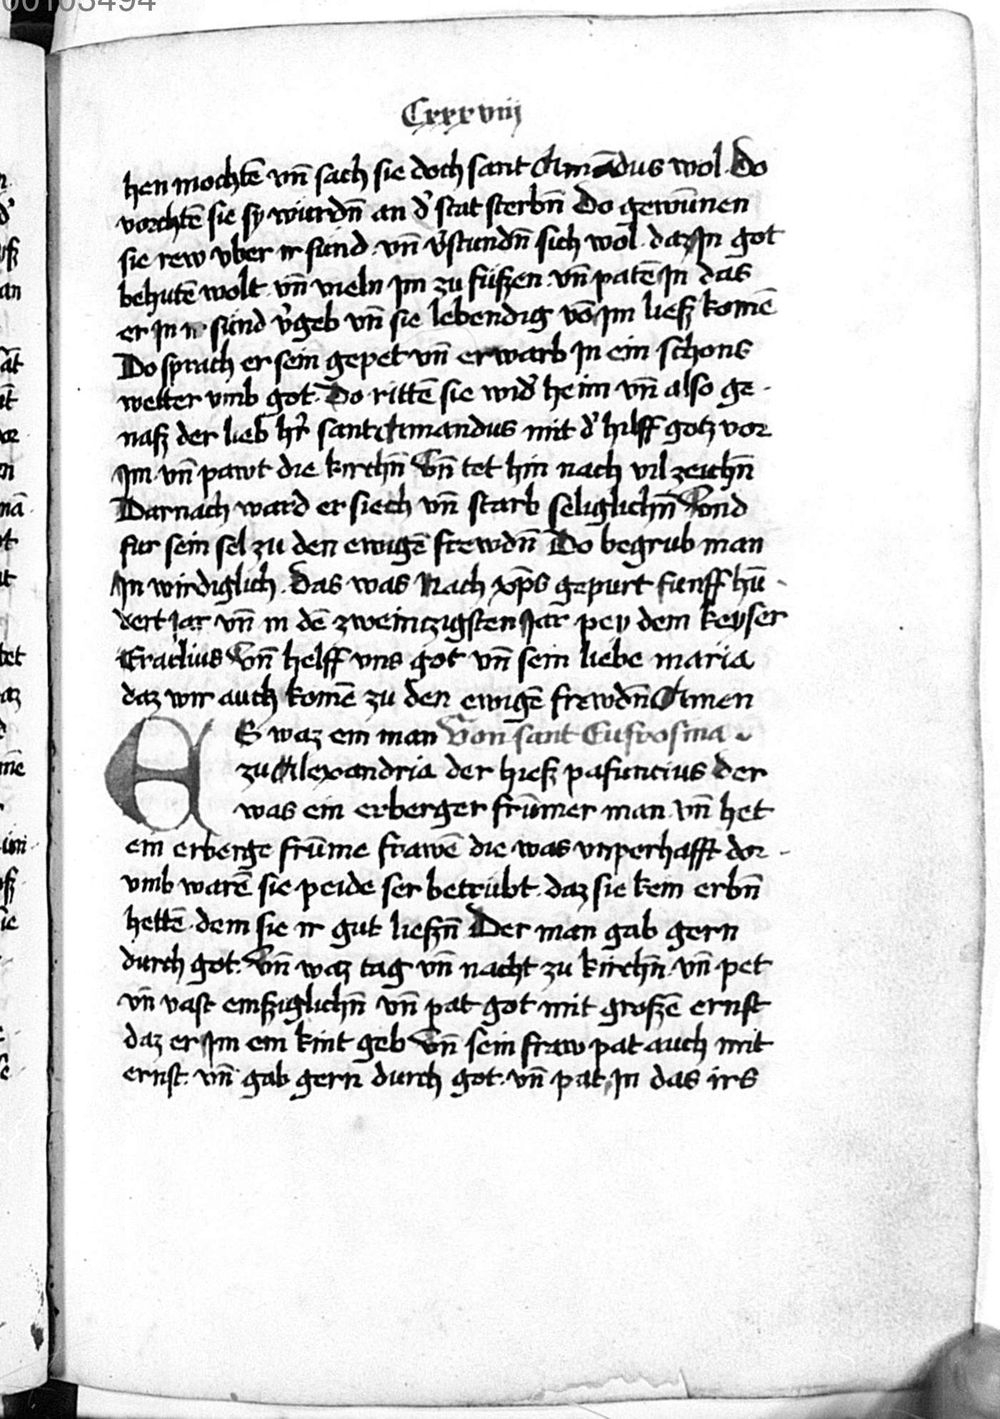 00103494
Cxxxviij
hen mochtē vn̄ sach sie doch sant Amādus wol. Do
vorchtē sie sy wurdn̄ an d' stat sterbn̄ Do gewūnen
sie rew vber ir sund. vn̄ v'stundn̄ sich wol. daz In got
behutē wolt. vn̄ vieln im zu fußen. vn̄ patē In das
er In ir sund v'geb vn̄ sie lebendig vō Im ließ komē
Do sprach er sein gepet vn̄ erwarb In ein schons
wetter vmb got. Do rittē sie wid' heim vn̄ also ge-
naß der lieb h'r sant Amandus mit d' hilff gotz vor
Im. vn̄ pawt die kirchn̄ Vn̄ tet hin nach vil zeichn̄
Darnach ward er siech vn̄ starb seliglichn̄ Vnd
fur sein sel zu den ewigē frewdn̄ Do begrub man
In wirdiglich. Das was Nach xp̄s gepurt funff hū-
dert Jar vn̄ in dē zweintzigsten Jar pey dem keyser
Eraclius Vn̄ helff vns got vn̄ sein liebe maria
daz wir auch komē zu den ewigē frewdn̄ Amen
ES waz ein man Von sant Eufrosina
zu Alexandria der hieß pafuncius der
was ein erberger frūmer man vn̄ het
ein erberge frūme frawē die was vnperhafft dor-
vmb warē sie peide ser betrübt. daz sie kein erbn̄
hettē. dem sie ir gut lieszn̄ Der man gab gern
durch got. Vn̄ waz tag vn̄ nacht zu kirchn̄. vn̄ pet
vn̄ vast emsziglichn̄ vn̄ pat got mit groszē ernst
daz er Im ein kint geb Vn̄ sein fraw pat auch mit
ernst. vn̄ gab gern durch got. vn̄ pat In das irs